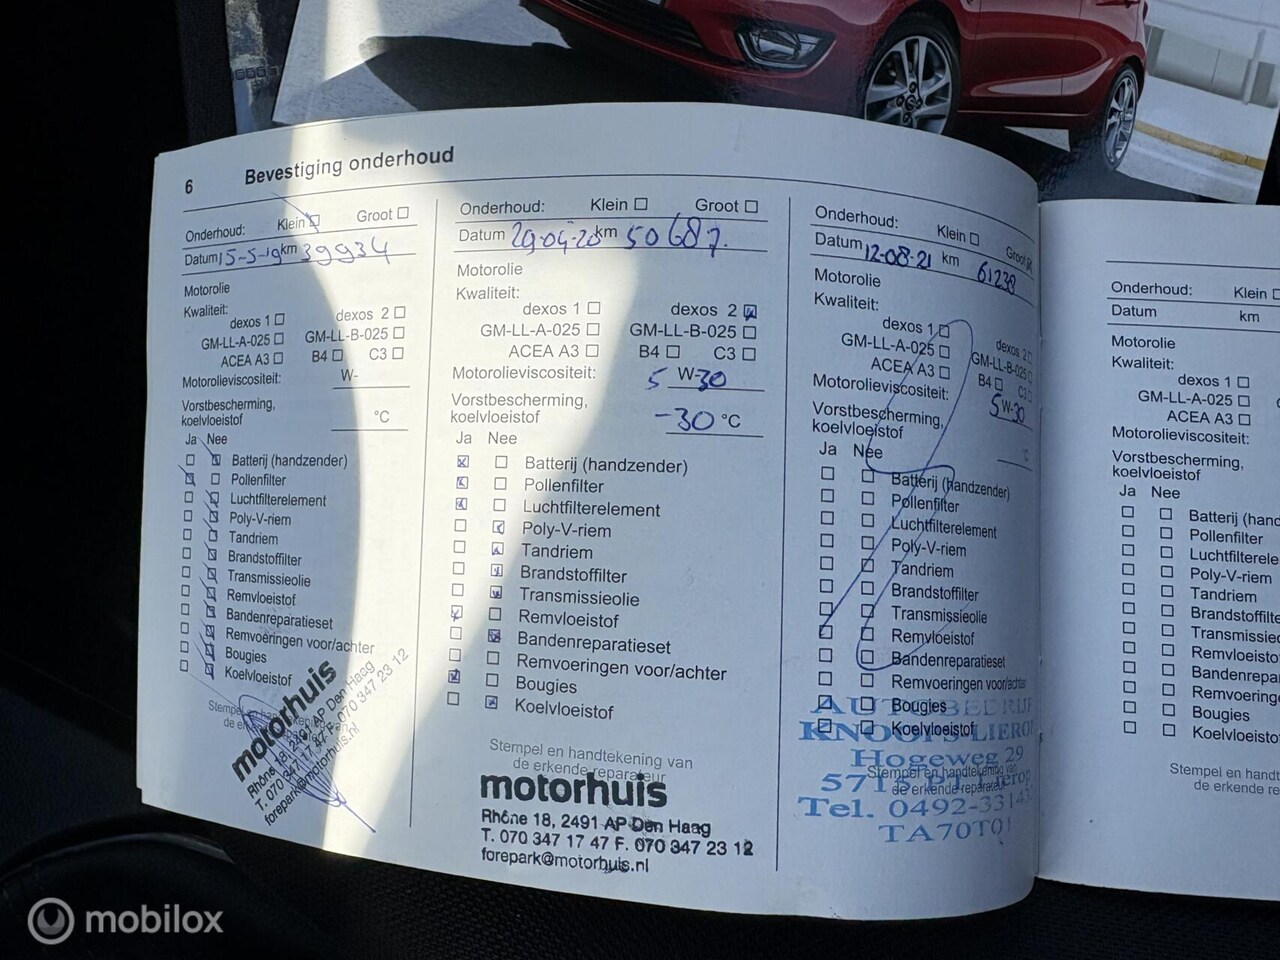 6 Bevestiging onderhoud
Onderhoud: Klein Groot
Datum 15-5-19 km 39934
Motorolie
Kwaliteit:
dexos 1 dexos 2
GM-LL-A-025 GM-LL-B-025
ACEA A3 B4 C3
Motorolieviscositeit: W-
Vorstbescherming,
koelvloeistof °C
Ja Nee
Batterij (handzender)
Pollenfilter
Luchtfilterelement
Poly-V-riem
Tandriem
Brandstoffilter
Transmissieolie
Remvloeistof
Bandenreparatieset
Remvoeringen voor/achter
Bougies
Koelvloeistof
motorhuis
Rhône 18, 2491 AP Den Haag
T. 070 347 17 47 F. 070 347 23 12
forepark@motorhuis.nl
Onderhoud: Klein Groot
Datum 29-04-20 km 50687.
Motorolie
Kwaliteit:
dexos 1 dexos 2
GM-LL-A-025 GM-LL-B-025
ACEA A3 B4 C3
Motorolieviscositeit: 5 W-30
Vorstbescherming,
koelvloeistof -30 °C
Ja Nee
Batterij (handzender)
Pollenfilter
Luchtfilterelement
Poly-V-riem
Tandriem
Brandstoffilter
Transmissieolie
Remvloeistof
Bandenreparatieset
Remvoeringen voor/achter
Bougies
Koelvloeistof
Stempel en handtekening van
de erkende reparateur
motorhuis
Rhône 18, 2491 AP Den Haag
T. 070 347 17 47 F. 070 347 23 12
forepark@motorhuis.nl
Onderhoud: Klein Groot
Datum 12-08-21 km 61238
Motorolie
Kwaliteit:
dexos 1 dexos 2
GM-LL-A-025 GM-LL-B-025
ACEA A3 B4 C3
Motorolieviscositeit: 5 W-30
Vorstbescherming,
koelvloeistof °C
Ja Nee
Batterij (handzender)
Pollenfilter
Luchtfilterelement
Poly-V-riem
Tandriem
Brandstoffilter
Transmissieolie
Remvloeistof
Bandenreparatieset
Remvoeringen voor/achter
Bougies
Koelvloeistof
Stempel en handtekening van
de erkende reparateur
KNOOPS LIEROP
Hogeweg 29
Tel. 0492-33143
TA70T01
Onderhoud: Klein
Datum km
Motorolie
Kwaliteit:
dexos 1
GM-LL-A-025
ACEA A3
Motorolieviscositeit:
Vorstbescherming,
koelvloeistof
Ja Nee
Batterij (hand
Pollenfilter
Luchtfilterele
Poly-V-riem
Tandriem
Brandstoffilte
Transmissie
Remvloeistof
Bandenrepar
Remvoering
Bougies
Koelvloeistof
Stempel en ha
de erken
mobilox